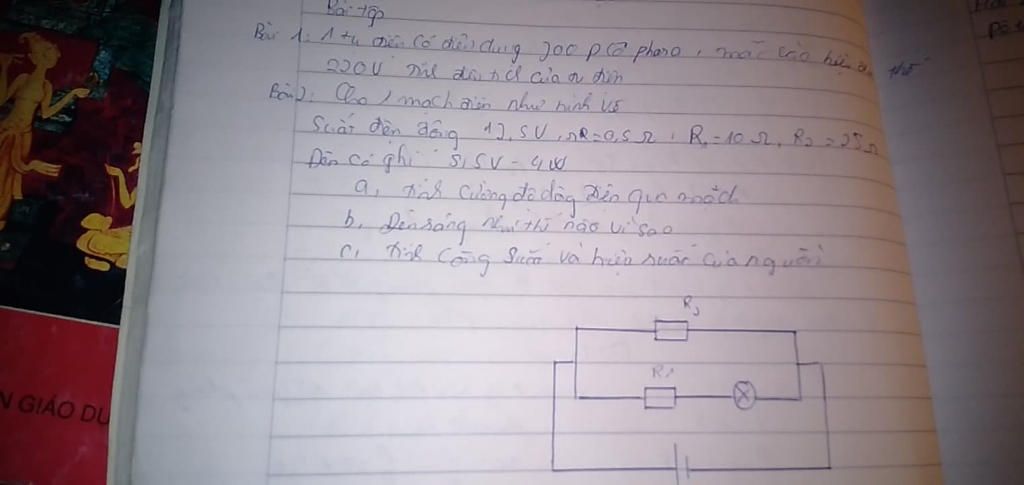 Bài tập
Bài 1: 1 tụ điện có điện dung 200 p(Pphara), mắc vào hiệu đ thế
220V tính điện tích của tụ điện
Bài 2: Cho 1 mạch điện như hình vẽ
Suất điện động 12,5V, r = 0,5 Ω, R1 = 10 Ω, R2 = 25 Ω
Đèn có ghi 5,5V - 4W
a, tính cường độ dòng điện qua mạch
b, Đèn sáng như thế nào vì sao
c, tính công suất và hiệu suất của nguồn
R2
R1
N GIÁO DỤ